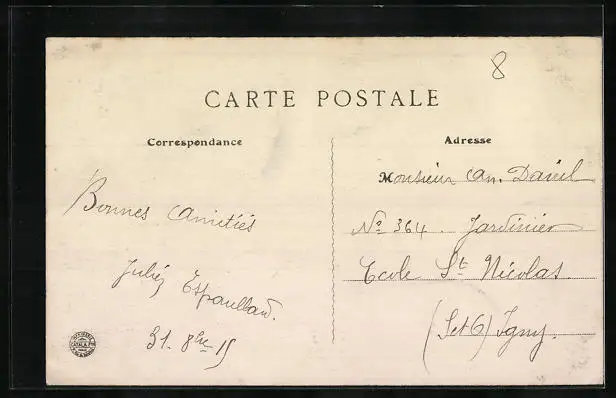 8
CARTE POSTALE
Correspondance
Adresse
Bonnes Amitiés
31. 8bre 15
Monsieur An. Daniel
No 364. Jardinier
Ecole St Nicolas
(Set O) Igny.